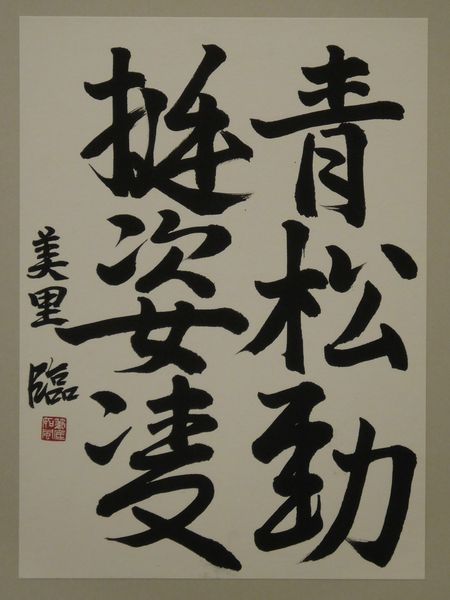 青松勁
挺姿凌
美里 臨